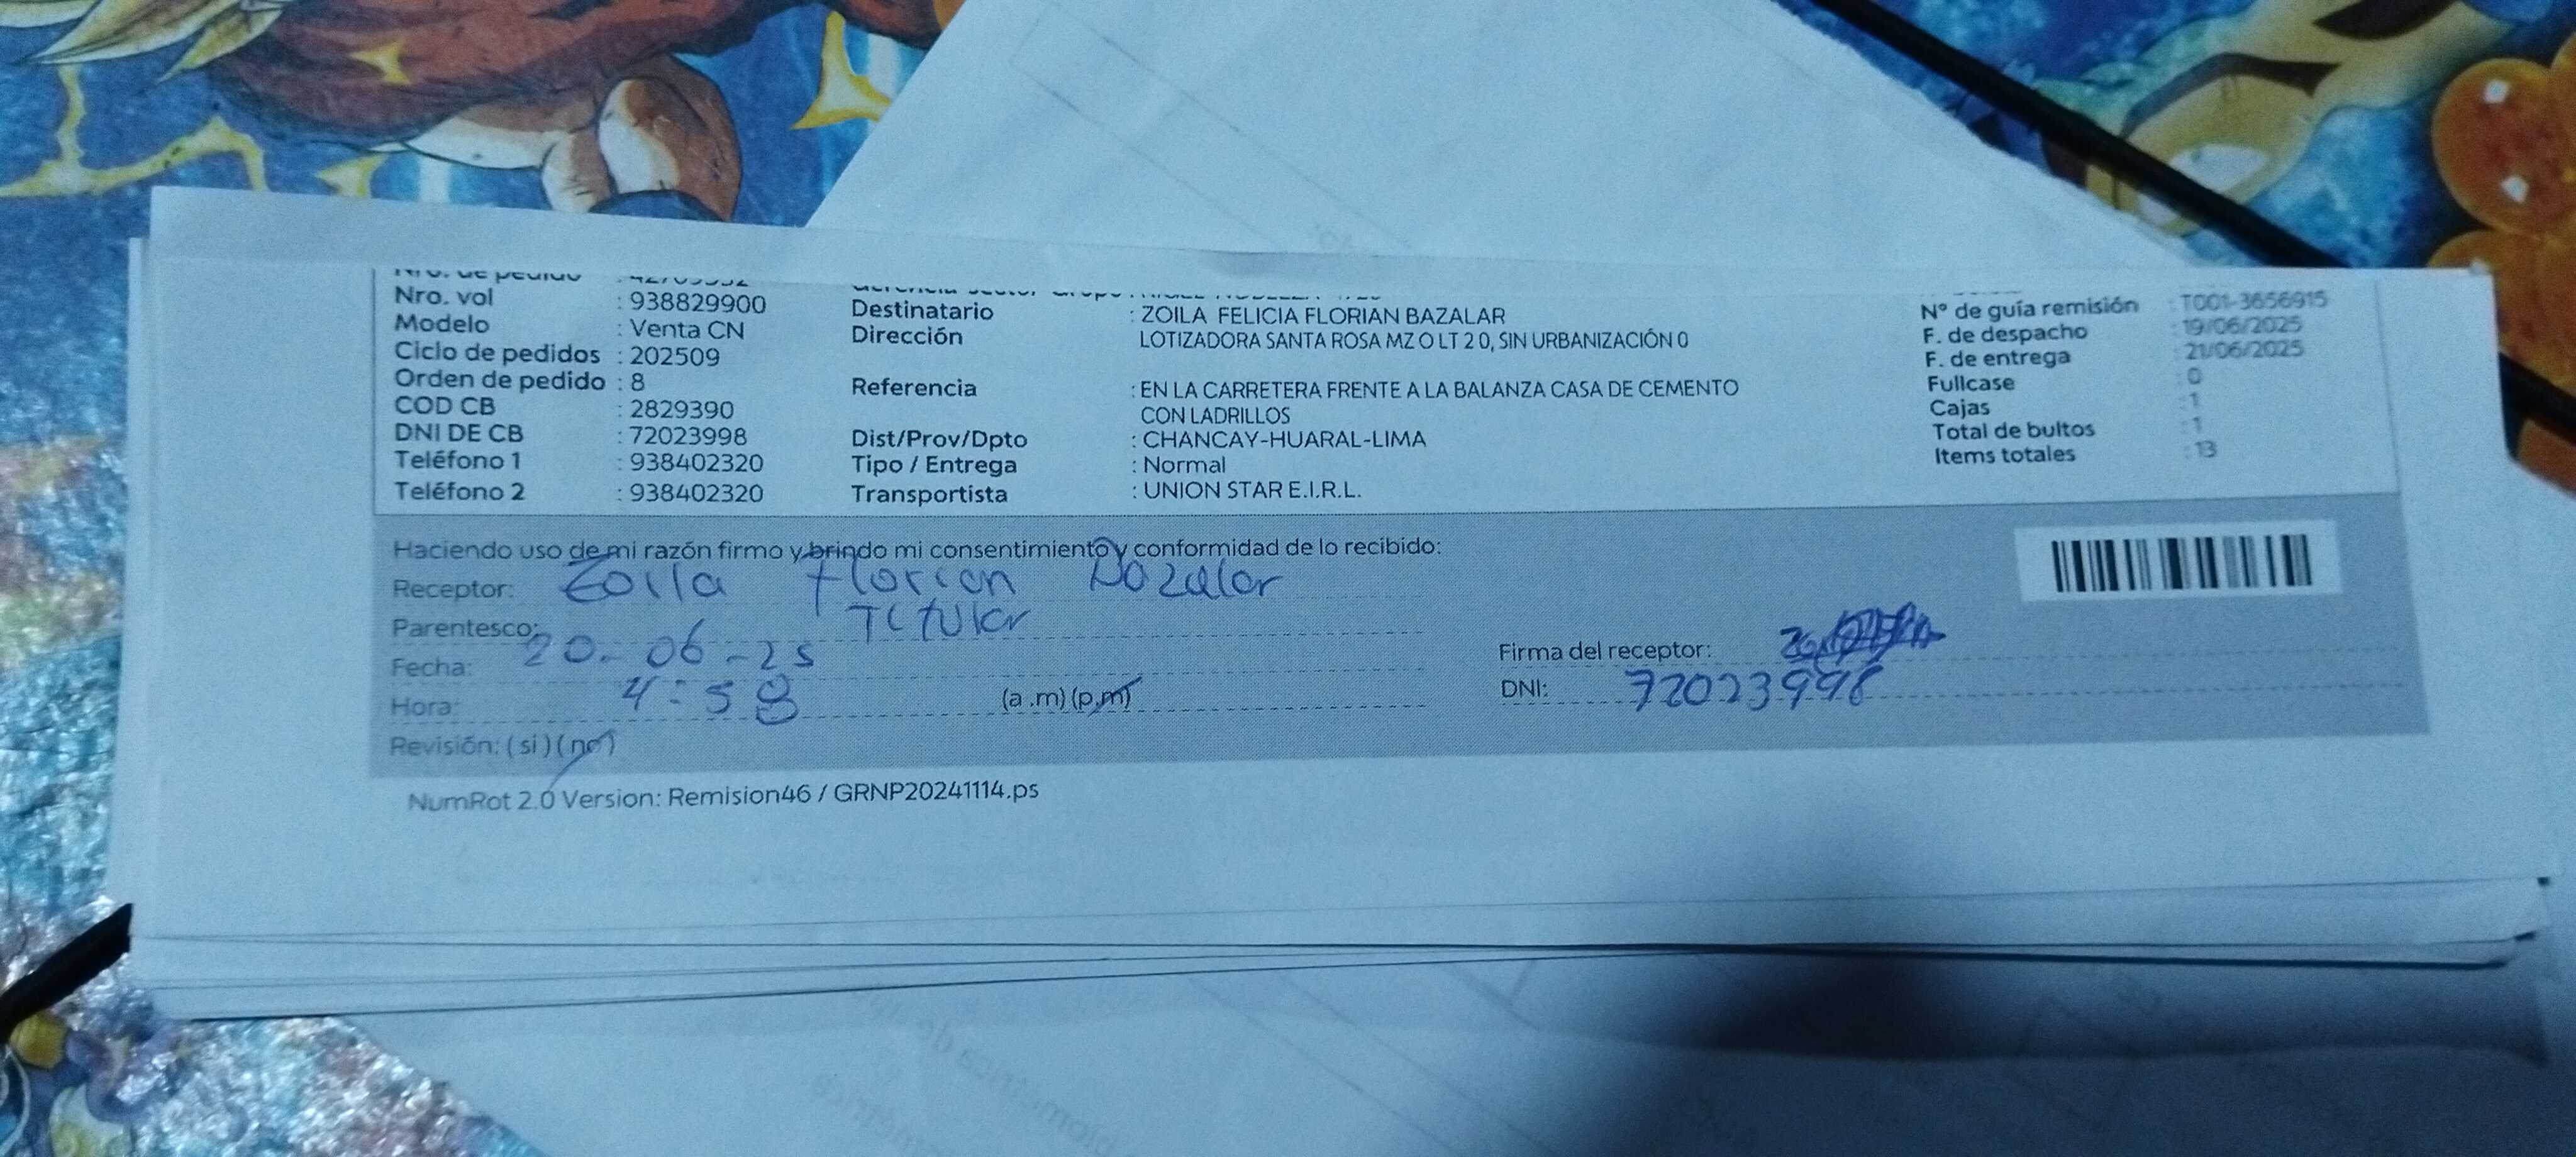 Nro. de pedido : 42705552
Nro. vol : 938829900
Modelo : Venta CN
Ciclo de pedidos : 202509
Orden de pedido : 8
COD CB : 2829390
DNI DE CB : 72023998
Teléfono 1 : 938402320
Teléfono 2 : 938402320
Destinatario : ZOILA FELICIA FLORIAN BAZALAR
Dirección LOTIZADORA SANTA ROSA MZ O LT 2 0, SIN URBANIZACIÓN 0
Referencia : EN LA CARRETERA FRENTE A LA BALANZA CASA DE CEMENTO
CON LADRILLOS
Dist/Prov/Dpto : CHANCAY-HUARAL-LIMA
Tipo / Entrega : Normal
Transportista : UNION STAR E.I.R.L.
N° de guía remisión : T001-3656915
F. de despacho : 19/06/2025
F. de entrega : 21/06/2025
Fullcase : 0
Cajas : 1
Total de bultos : 1
Items totales : 13
Haciendo uso de mi razón firmo y brindo mi consentimiento y conformidad de lo recibido:
Receptor: Zoila Florian Bazalar
Parentesco: Titular
Fecha: 20-06-25
Hora: 4:58 (a.m) (p.m)
Revisión: (si) (no)
Firma del receptor:
DNI: 72023998
NumRot 2.0 Version: Remision46 / GRNP20241114.ps